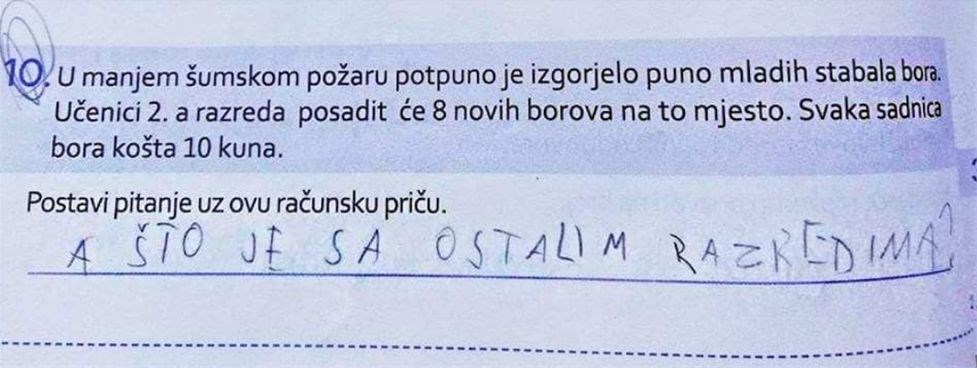 10. U manjem šumskom požaru potpuno je izgorjelo puno mladih stabala bora.
Učenici 2. a razreda posadit će 8 novih borova na to mjesto. Svaka sadnica
bora košta 10 kuna.
Postavi pitanje uz ovu računsku priču.
A ŠTO JE SA OSTALIM RAZREDIMA?